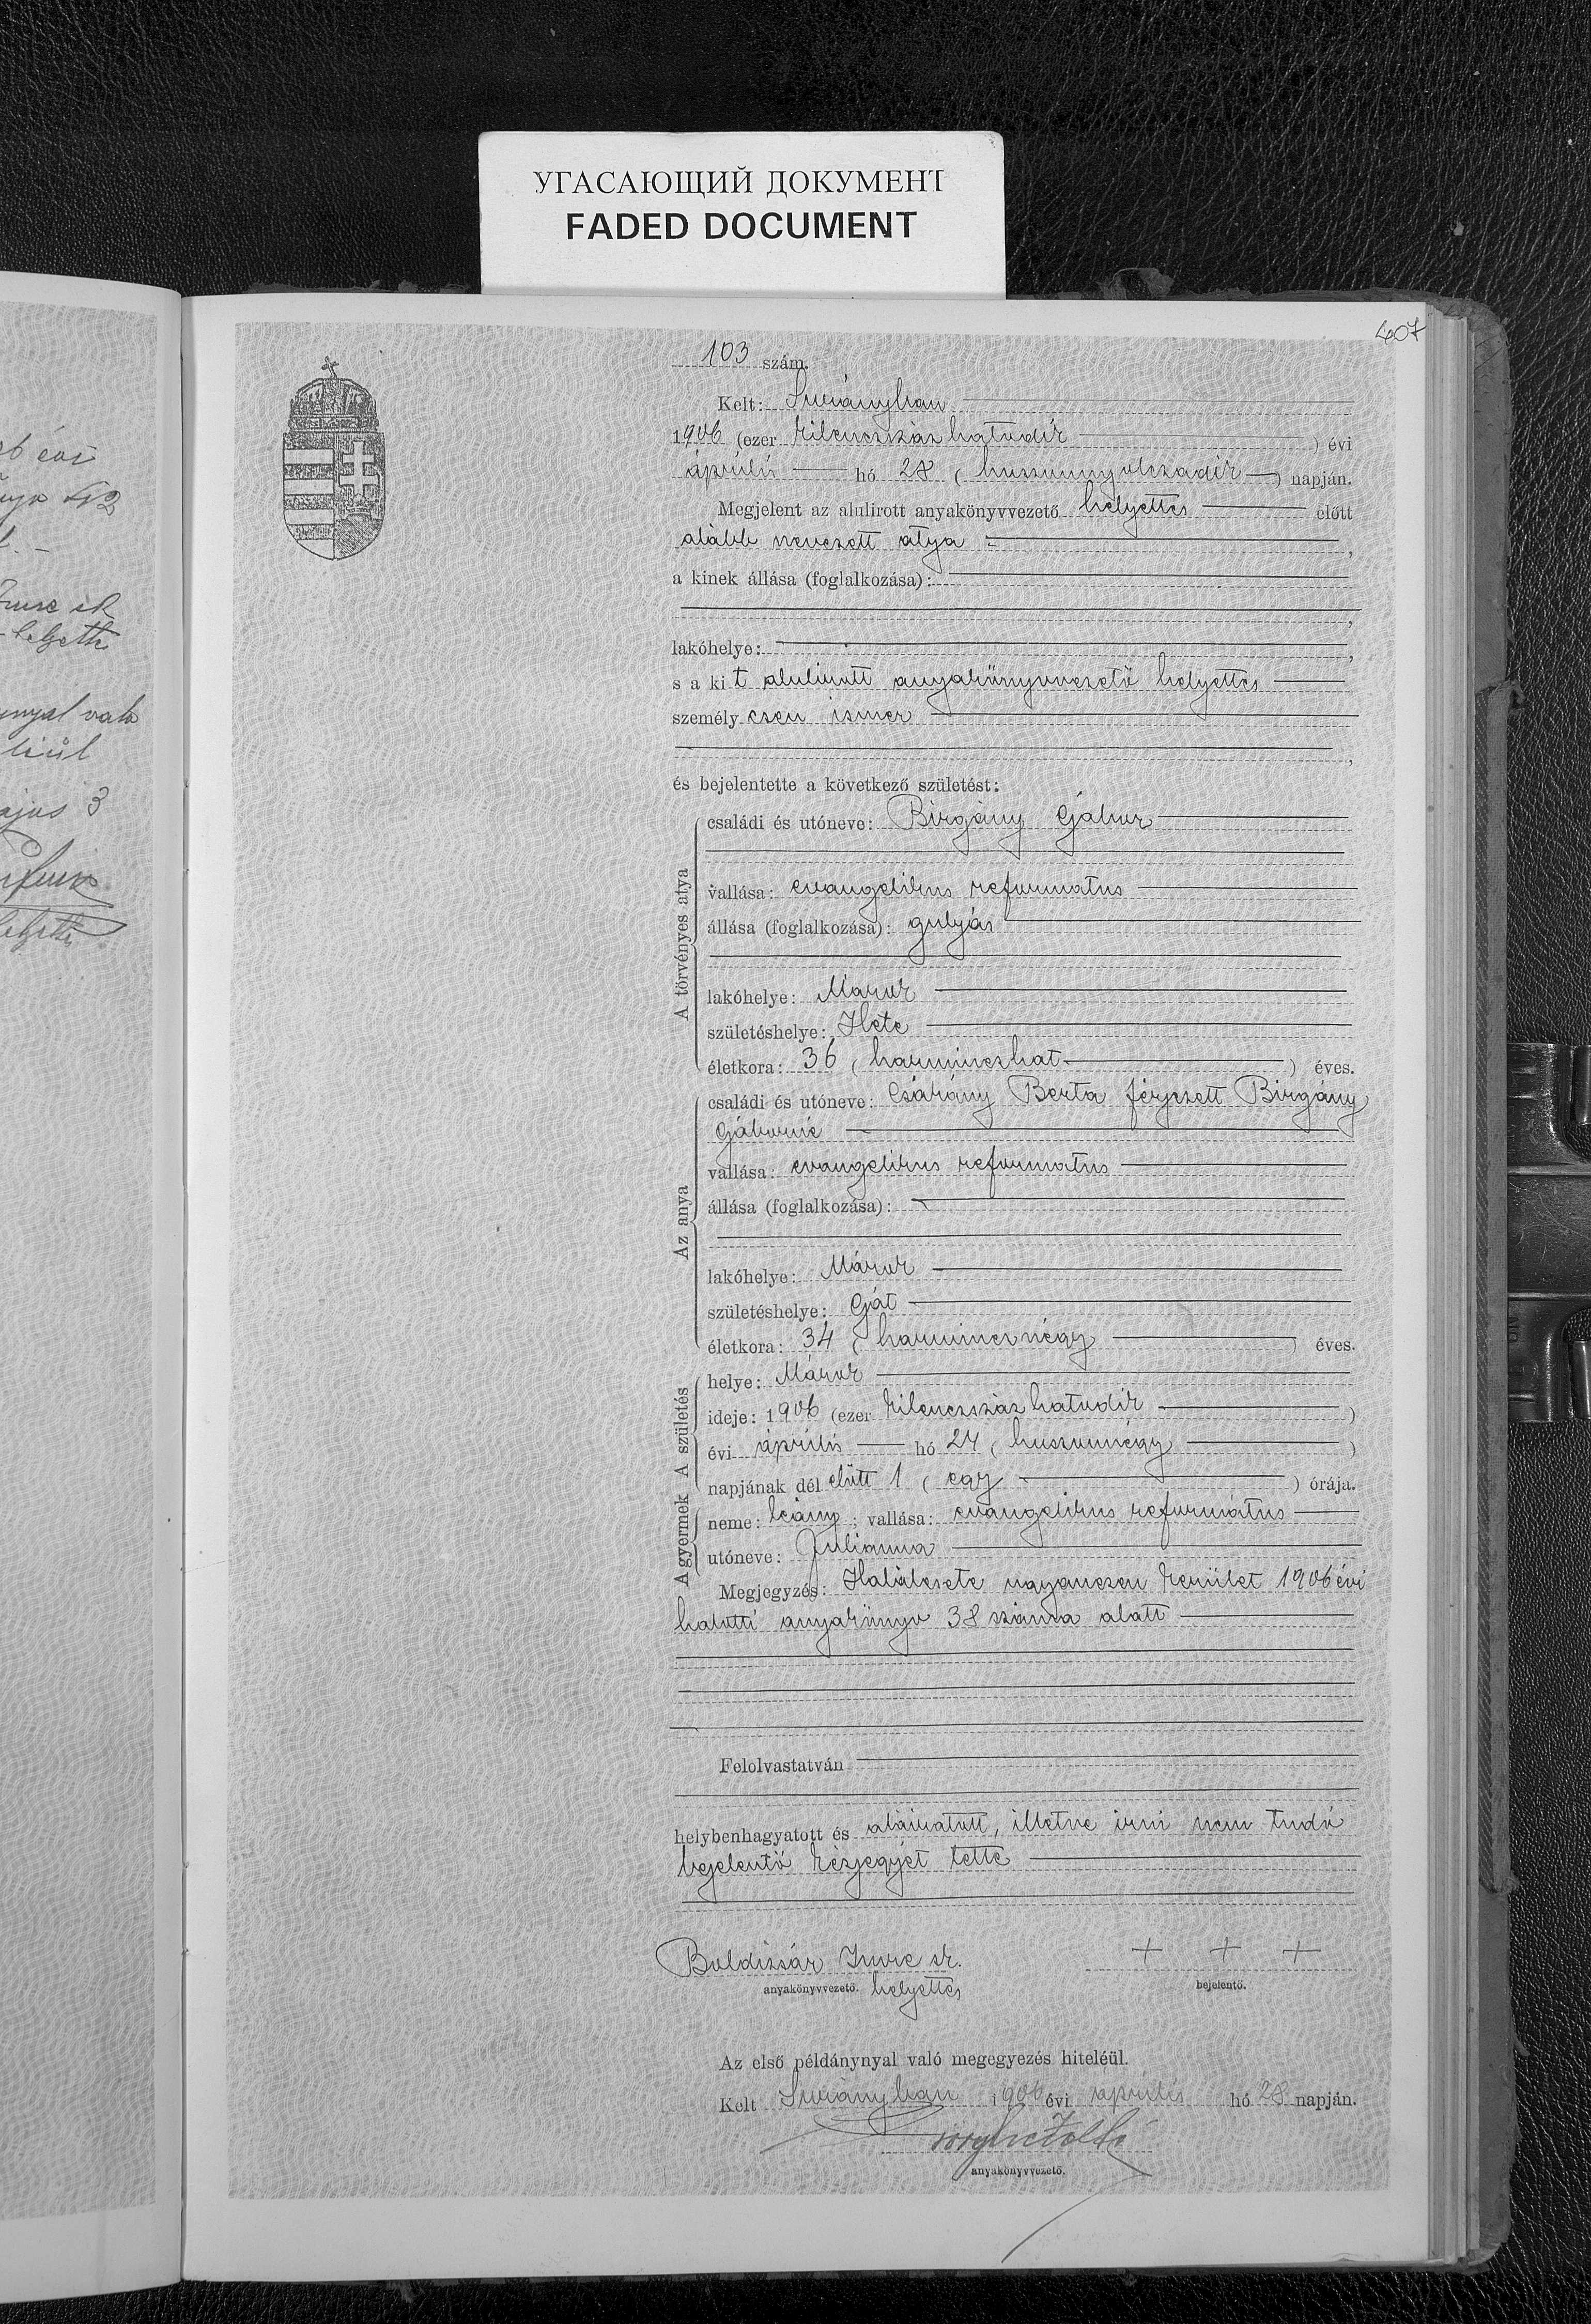 УГАСАЮЩИЙ ДОКУМЕНТ
FADED DOCUMENT
407
103 szám.
Kelt: Surányban
1906 (ezer kilenczszázhatodik) évi
április hó 28 (huszonnyolczadik) napján.
Megjelent az alulirott anyakönyvvezető helyettes előtt
alább nevezett atya
a kinek állása (foglalkozása):
lakóhelye:
s a kit alulirott anyakönyvvezető helyettes
személyesen ismer
és bejelentette a következő születést:
A törvényes atya
családi és utóneve: Birgány Gábor
vallása: evangelikus reformatus
állása (foglalkozása): gulyás
lakóhelye: Márok
születéshelye: Hete
életkora: 36 (harminczhat) éves.
Az anya
családi és utóneve: Csárány Berta férjezett Birgány
Gáborné
vallása: evangelikus reformatus
állása (foglalkozása):
lakóhelye: Márok
születéshelye: Gát
életkora: 34 (harmincznégy) éves.
A születés
helye: Márok
ideje: 1906 (ezer kilenczszázhatodik)
évi április hó 24 (huszonnégy)
napjának dél előtt 1 (egy) órája.
A gyermek
neme: leány; vallása: evangelikus református
utóneve: Julianna
Megjegyzés: Halálesete ugyanezen kerület 1906 évi
halotti anyakönyv 38 száma alatt
Felolvastatván
helybenhagyatott és aláiratott, illetve irni nem tudó
bejelentő kézjegyét tette
Boldizsár Imre sk. + + +
anyakönyvvezető. helyettes bejelentő.
Az első példánynyal való megegyezés hiteléül.
Kelt Surányban 1906 évi április hó 28 napján.
anyakönyvvezető.